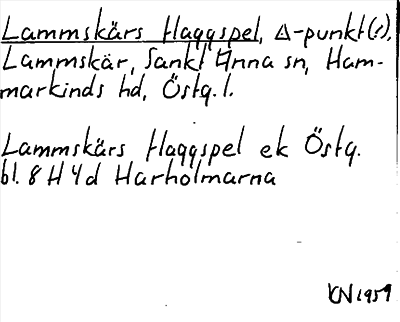 Lammskärs Haggspel, △-punkt(?),
Lammskär, Sankt Anna sn, Ham-
markinds hd, Östg. l.
Lammskärs Haggspel ek Östg.
bl. 8 H 4d Harholmarna
KN 1959